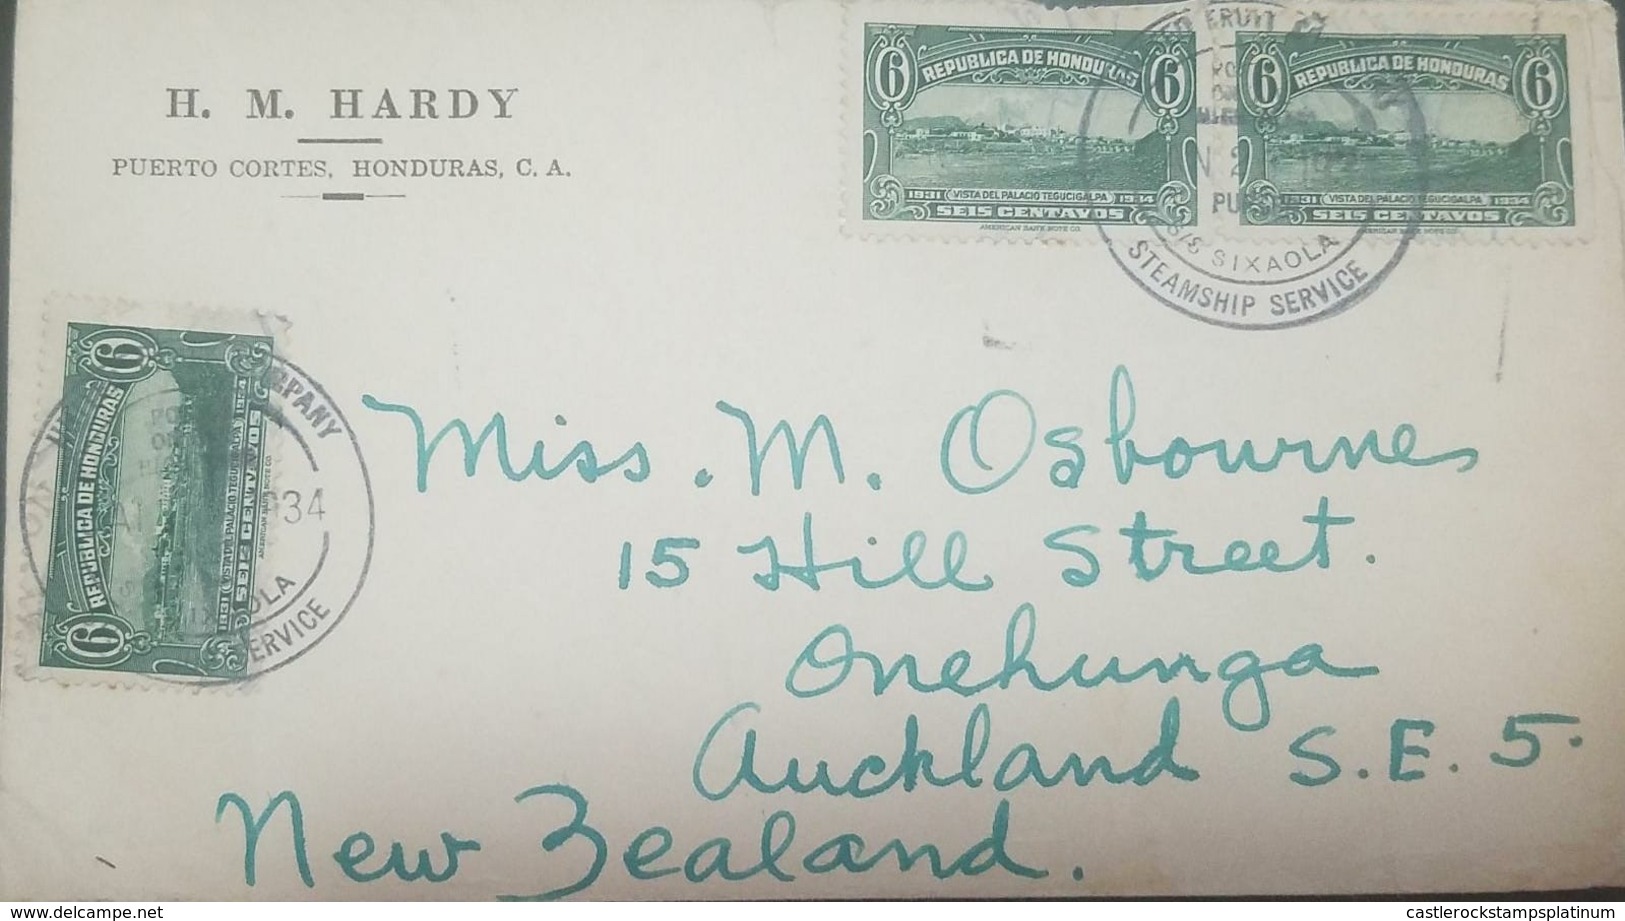 H. M. HARDY
PUERTO CORTES, HONDURAS, C. A.
6 REPUBLICA DE HONDURAS 6
1931 VISTA DEL PALACIO TEGUCIGALPA 1934
SEIS CENTAVOS
AMERICAN BANK NOTE CO.
6 REPUBLICA DE HONDURAS 6
1931 VISTA DEL PALACIO TEGUCIGALPA 1934
SEIS CENTAVOS
AMERICAN BANK NOTE CO.
FRUIT
S/S SIXAOLA
STEAMSHIP SERVICE
6 REPUBLICA DE HONDURAS 6
1931 VISTA DEL PALACIO TEGUCIGALPA 1934
SEIS CENTAVOS
AMERICAN BANK NOTE CO.
SERVICE
Miss. M. Osbournes
15 Hill Street.
Onehunga
Auckland S.E.5.
New Zealand.
castlerockstampsplatinum
delcampe.net